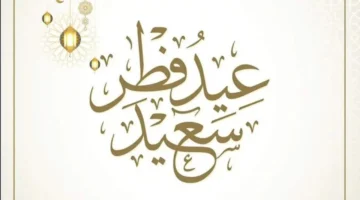 عِيدُ فِطْر
سَعِيْد